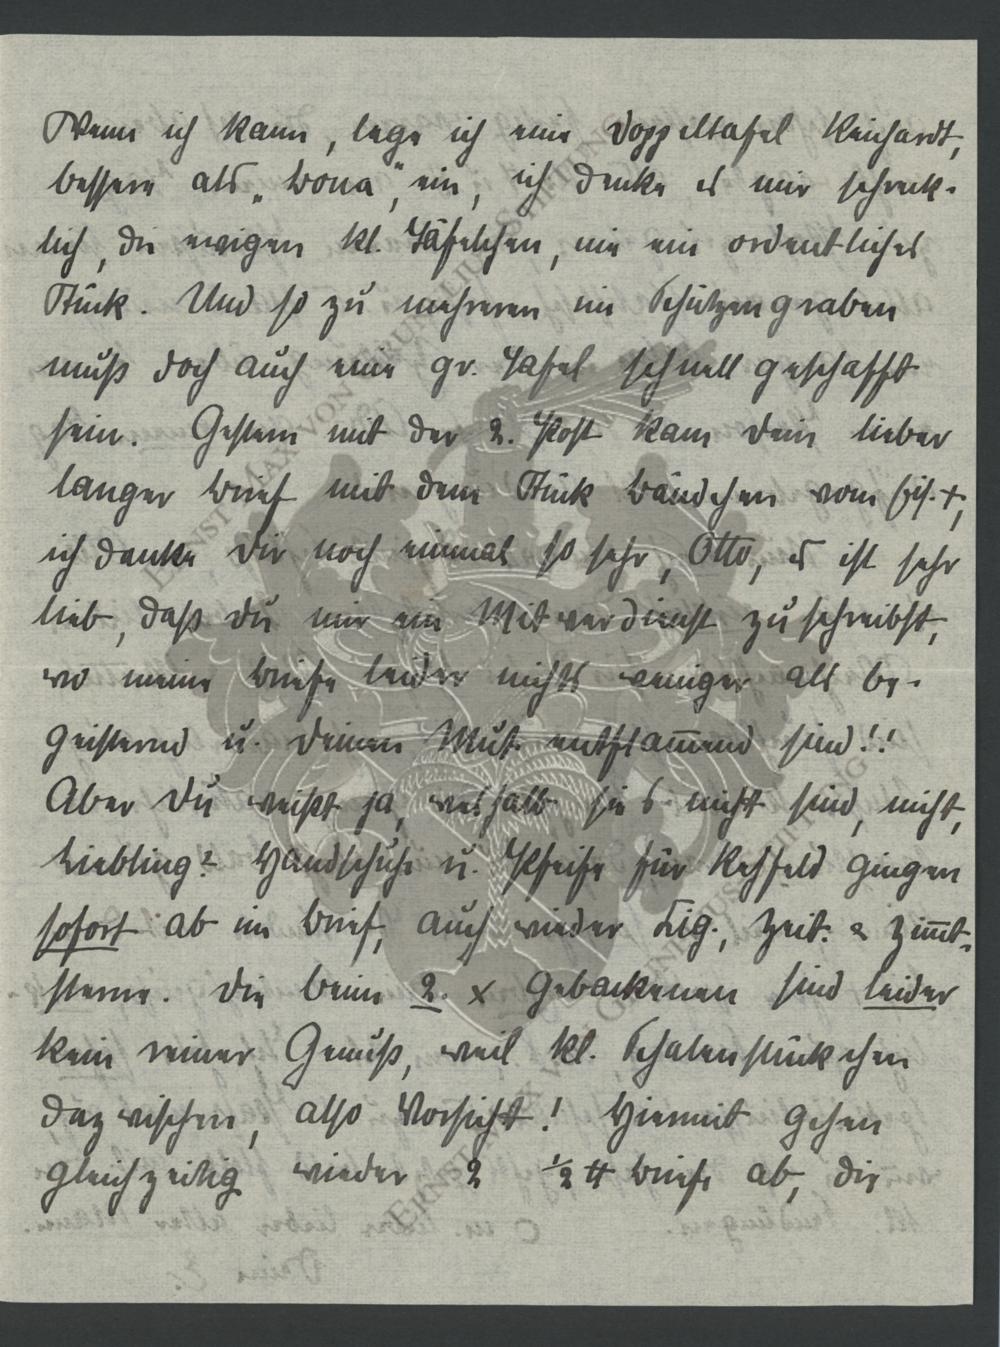 Wenn ich kann, lege ich eine Doppeltafel Reichardt,
bessere als „Bona“, ein, ich denke es mir schreck-
lich, die ewigen kl. Täfelchen, nie ein ordentliches
Stück. Und so zu mehreren im Schützengraben
muß doch auch eine gr. Tafel schnell geschafft
sein. Gestern mit der 2. Post kam Dein lieber
langer Brief mit dem Stück Bändchen vom Eis. +,
ich danke Dir noch einmal so sehr, Otto, es ist sehr
lieb, daß Du mir ein Mitverdienst zuschreibst,
wo meine Briefe leider nichts weniger als be-
geisternd u. Deinen Mut entflam̅end sind!!
Aber Du weißt ja, weshalb sie's nicht sind, nicht,
Liebling? Handschuhe u. Pfeife für Rehfeld gingen
sofort ab im Brief, auch wieder Zig., Zeit. & Zim̅t-
sterne. Die beim 2. x Gebackenen sind leider
kein reiner Genuß, weil kl. Schalenstückchen
dazwischen, also Vorsicht! Hiermit gehen
gleichzeitig wieder 2 ½ ℔ Briefe ab, die
ERNST MAX VON GRUNELIUS-STIFTUNG
ERNST MAX VON GRUNELIUS-STIFTUNG